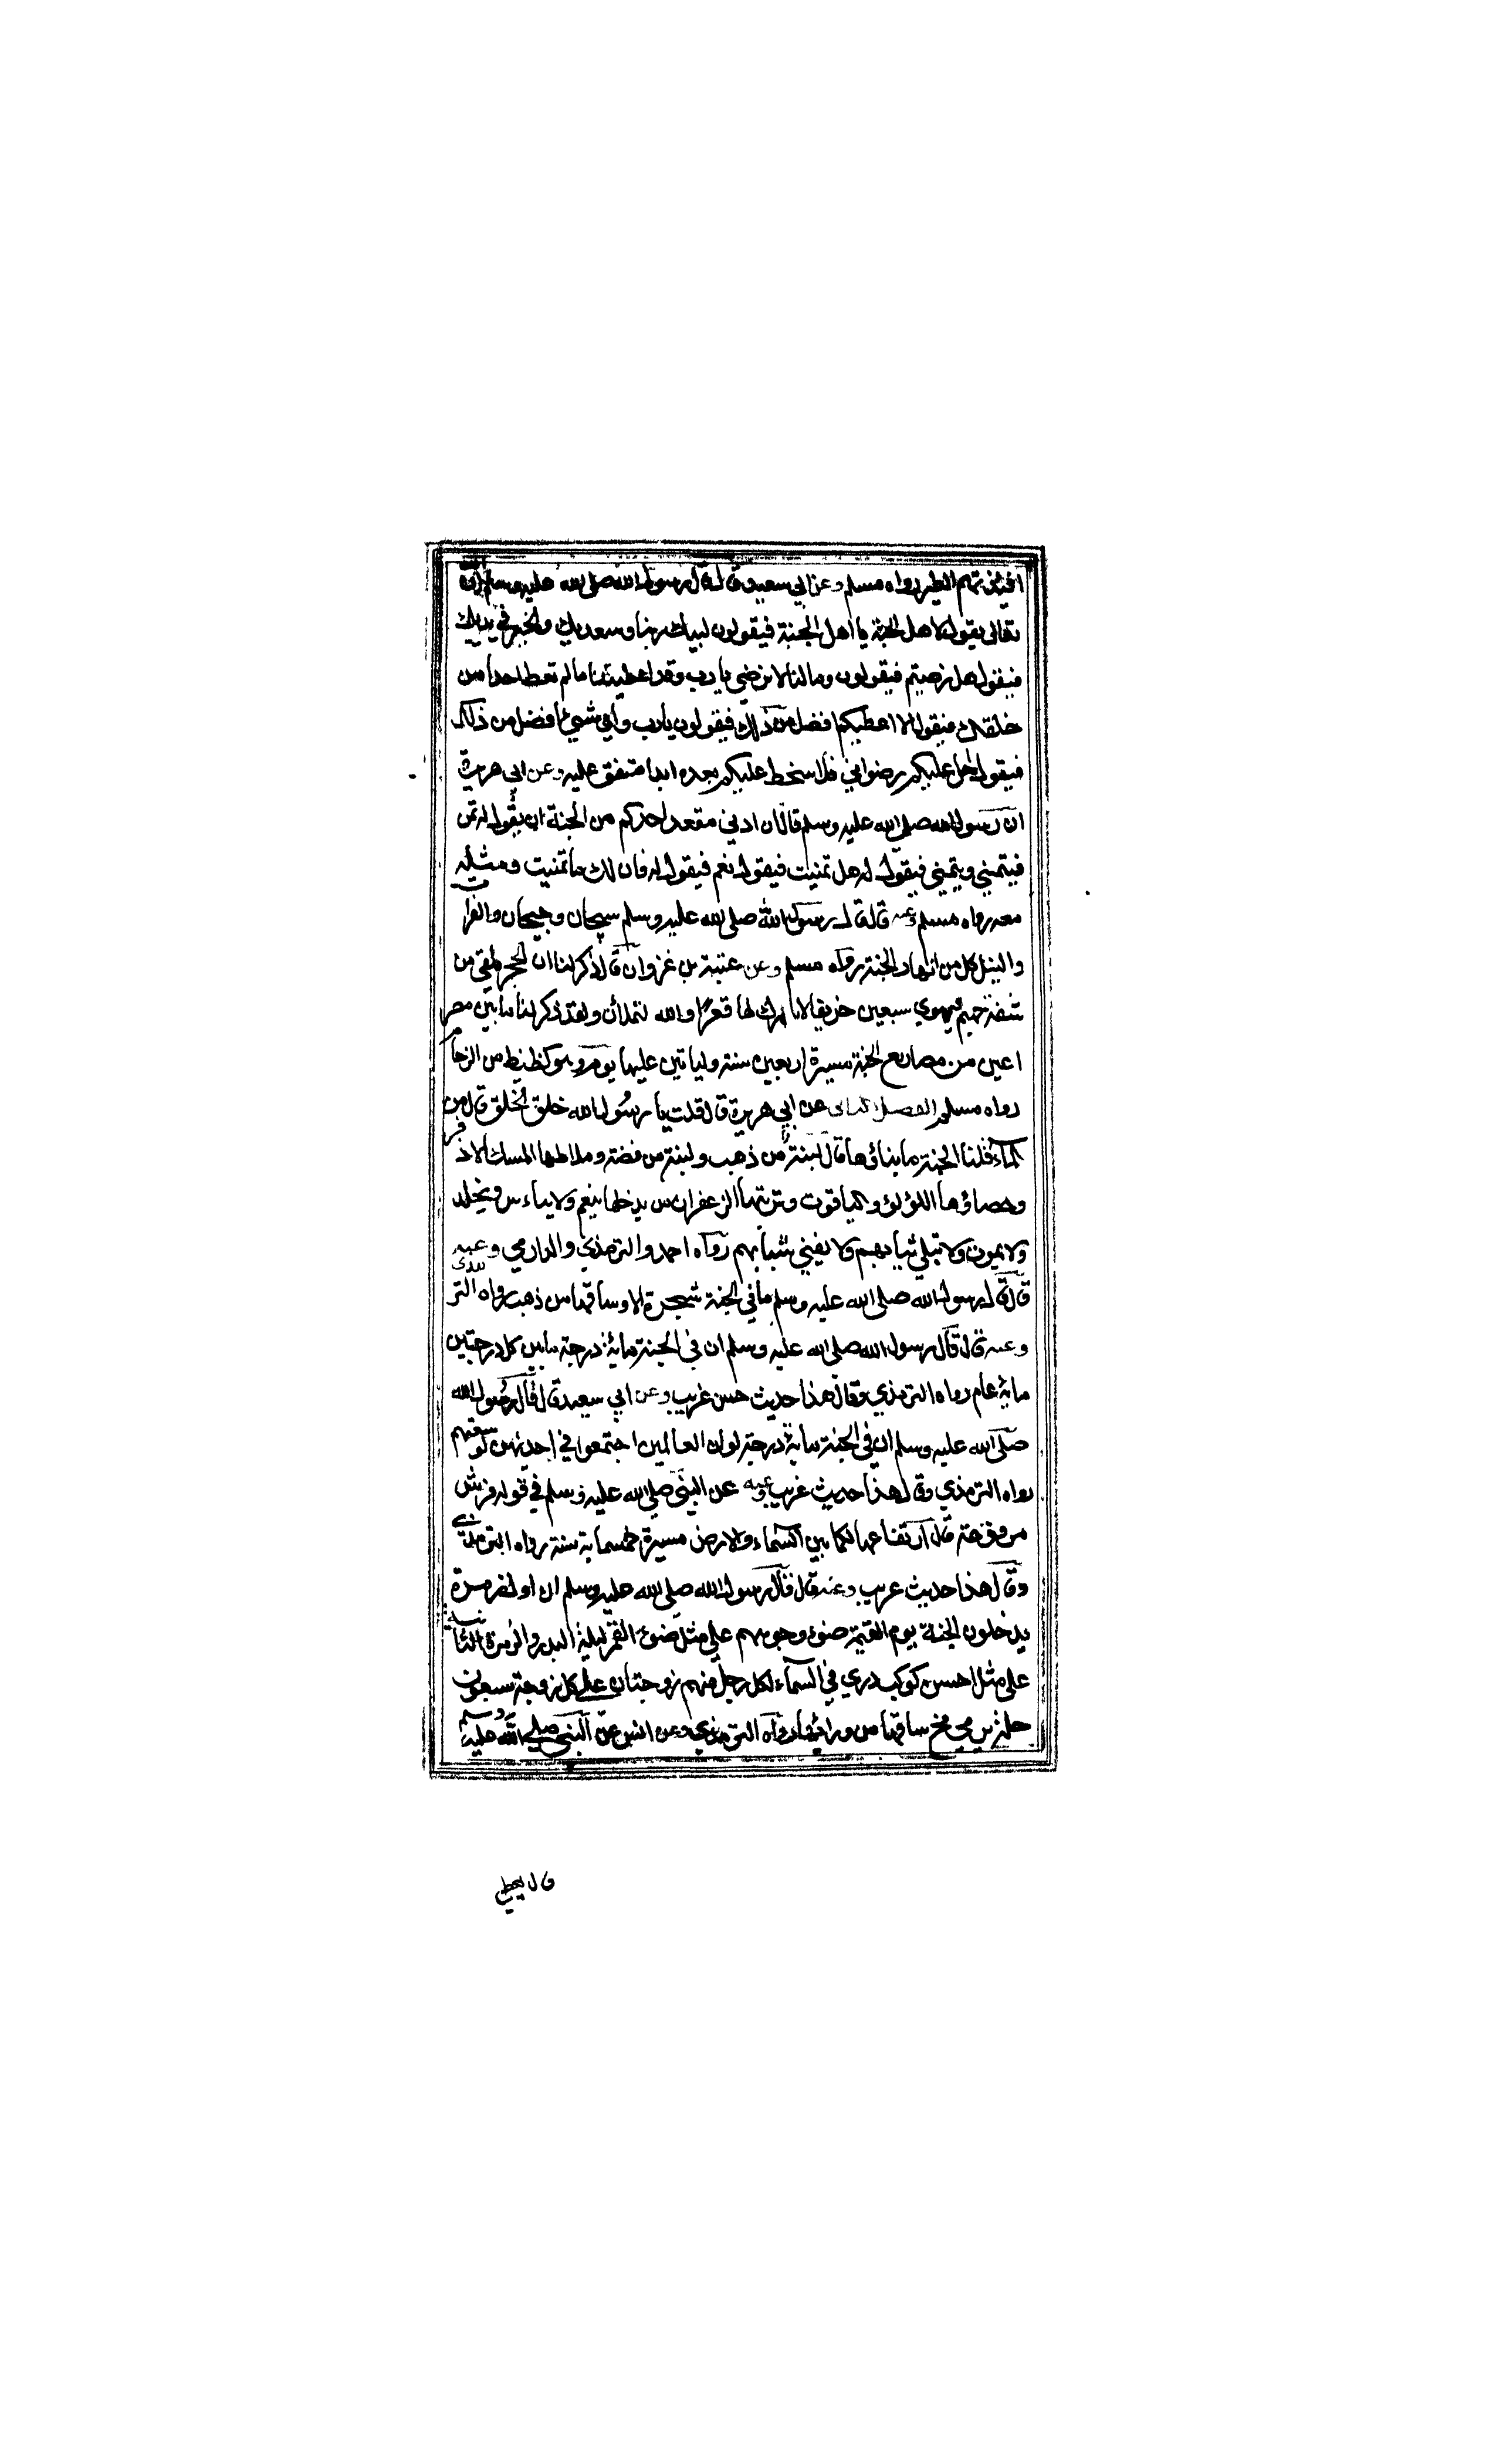 افئدة الطير رواه مسلم وعن ابي سعيد قال قال رسول الله صلى الله عليه وسلم ان الله
تعالى يقول لاهل الجنة يا اهل الجنة فيقولون لبيك ربنا وسعديك والخير في يديك
فيقول هل رضيتم فيقولون وما لنا لا نرضي يا رب وقد اعطيتنا ما لم تعط احدا من
خلقك فيقول الا اعطيكم افضل من ذلك فيقولون يا رب واي شيئ افضل من ذلك
فيقول احل عليكم رضواني فلا اسخط عليكم بعده ابدا متفق عليه وعن ابي هريرة
ان رسول الله صلى الله عليه وسلم قال ان ادني مقعد احدكم من الجنة ان يقول له تمن
فيتمني ويتمني فيقول له هل تمنيت فيقول نعم فيقول له فان لك ما تمنيت ومثله
معه رواه مسلم وعنه قال قال رسول الله صلى الله عليه وسلم سيحان وجيحان والفرات
والنيل كل من انهار الجنة رواه مسلم وعن عتبة بن غزوان قال ذكر لنا ان الحجر يلقى من
شفة جهنم فيهوي سبعين خريفا لا يدرك لها قعرا والله لتملأن ولقد ذكر لنا ان ما بين مصر
اعين من مصاريع الجنة مسيرة اربعين سنة ولياتين عليها يوم وهو كظيظ من الزحام
رواه مسلم الفصل الثاني عن ابي هريرة قال قلت يا رسول الله خلق الخلق قال من
الماء قلنا الجنة ما بناؤها قال لبنة من ذهب ولبنة من فضة وملاطها المسك الاذفر
وحصاؤها اللؤلؤ والياقوت وتربتها الزعفران من يدخلها ينعم ولا يباءس ويخلد
ولا يموت ولا تبلي ثيابهم ولا يفني شبابهم رواه احمد والترمذي والدارمي وعنه
قال قال رسول الله صلى الله عليه وسلم ما في الجنة شجرة الا وساقها من ذهب رواه الترمذي
وعنه قال قال رسول الله صلى الله عليه وسلم ان في الجنة مائة درجة ما بين كل درجتين
مائة عام رواه الترمذي وقال هذا حديث حسن غريب وعن ابي سعيد قال قال رسول الله
صلى الله عليه وسلم ان في الجنة مائة درجة لو ان العالمين اجتمعوا في احديهن لوسعتهم
رواه الترمذي وقال هذا حديث غريب وعنه عن النبي صلى الله عليه وسلم في قوله وفرش
مرفوعة قال ارتفاعها لكما بين السماء والارض مسيرة خمسماية سنة رواه الترمذي
وقال هذا حديث غريب وعنه قال قال رسول الله صلى الله عليه وسلم ان اول زمرة
يدخلون الجنة يوم القيمة ضوء وجوههم على مثل ضوء القمر ليلة البدر والزمرة الثانية
على مثل احسن كوكب دري في السماء لكل رجل منهم زوجتان على كل زوجة سبعون
حلة يري مخ ساقها من ورائها رواه الترمذي وعن انس عن النبي صلى الله عليه وسلم
قال يعطي